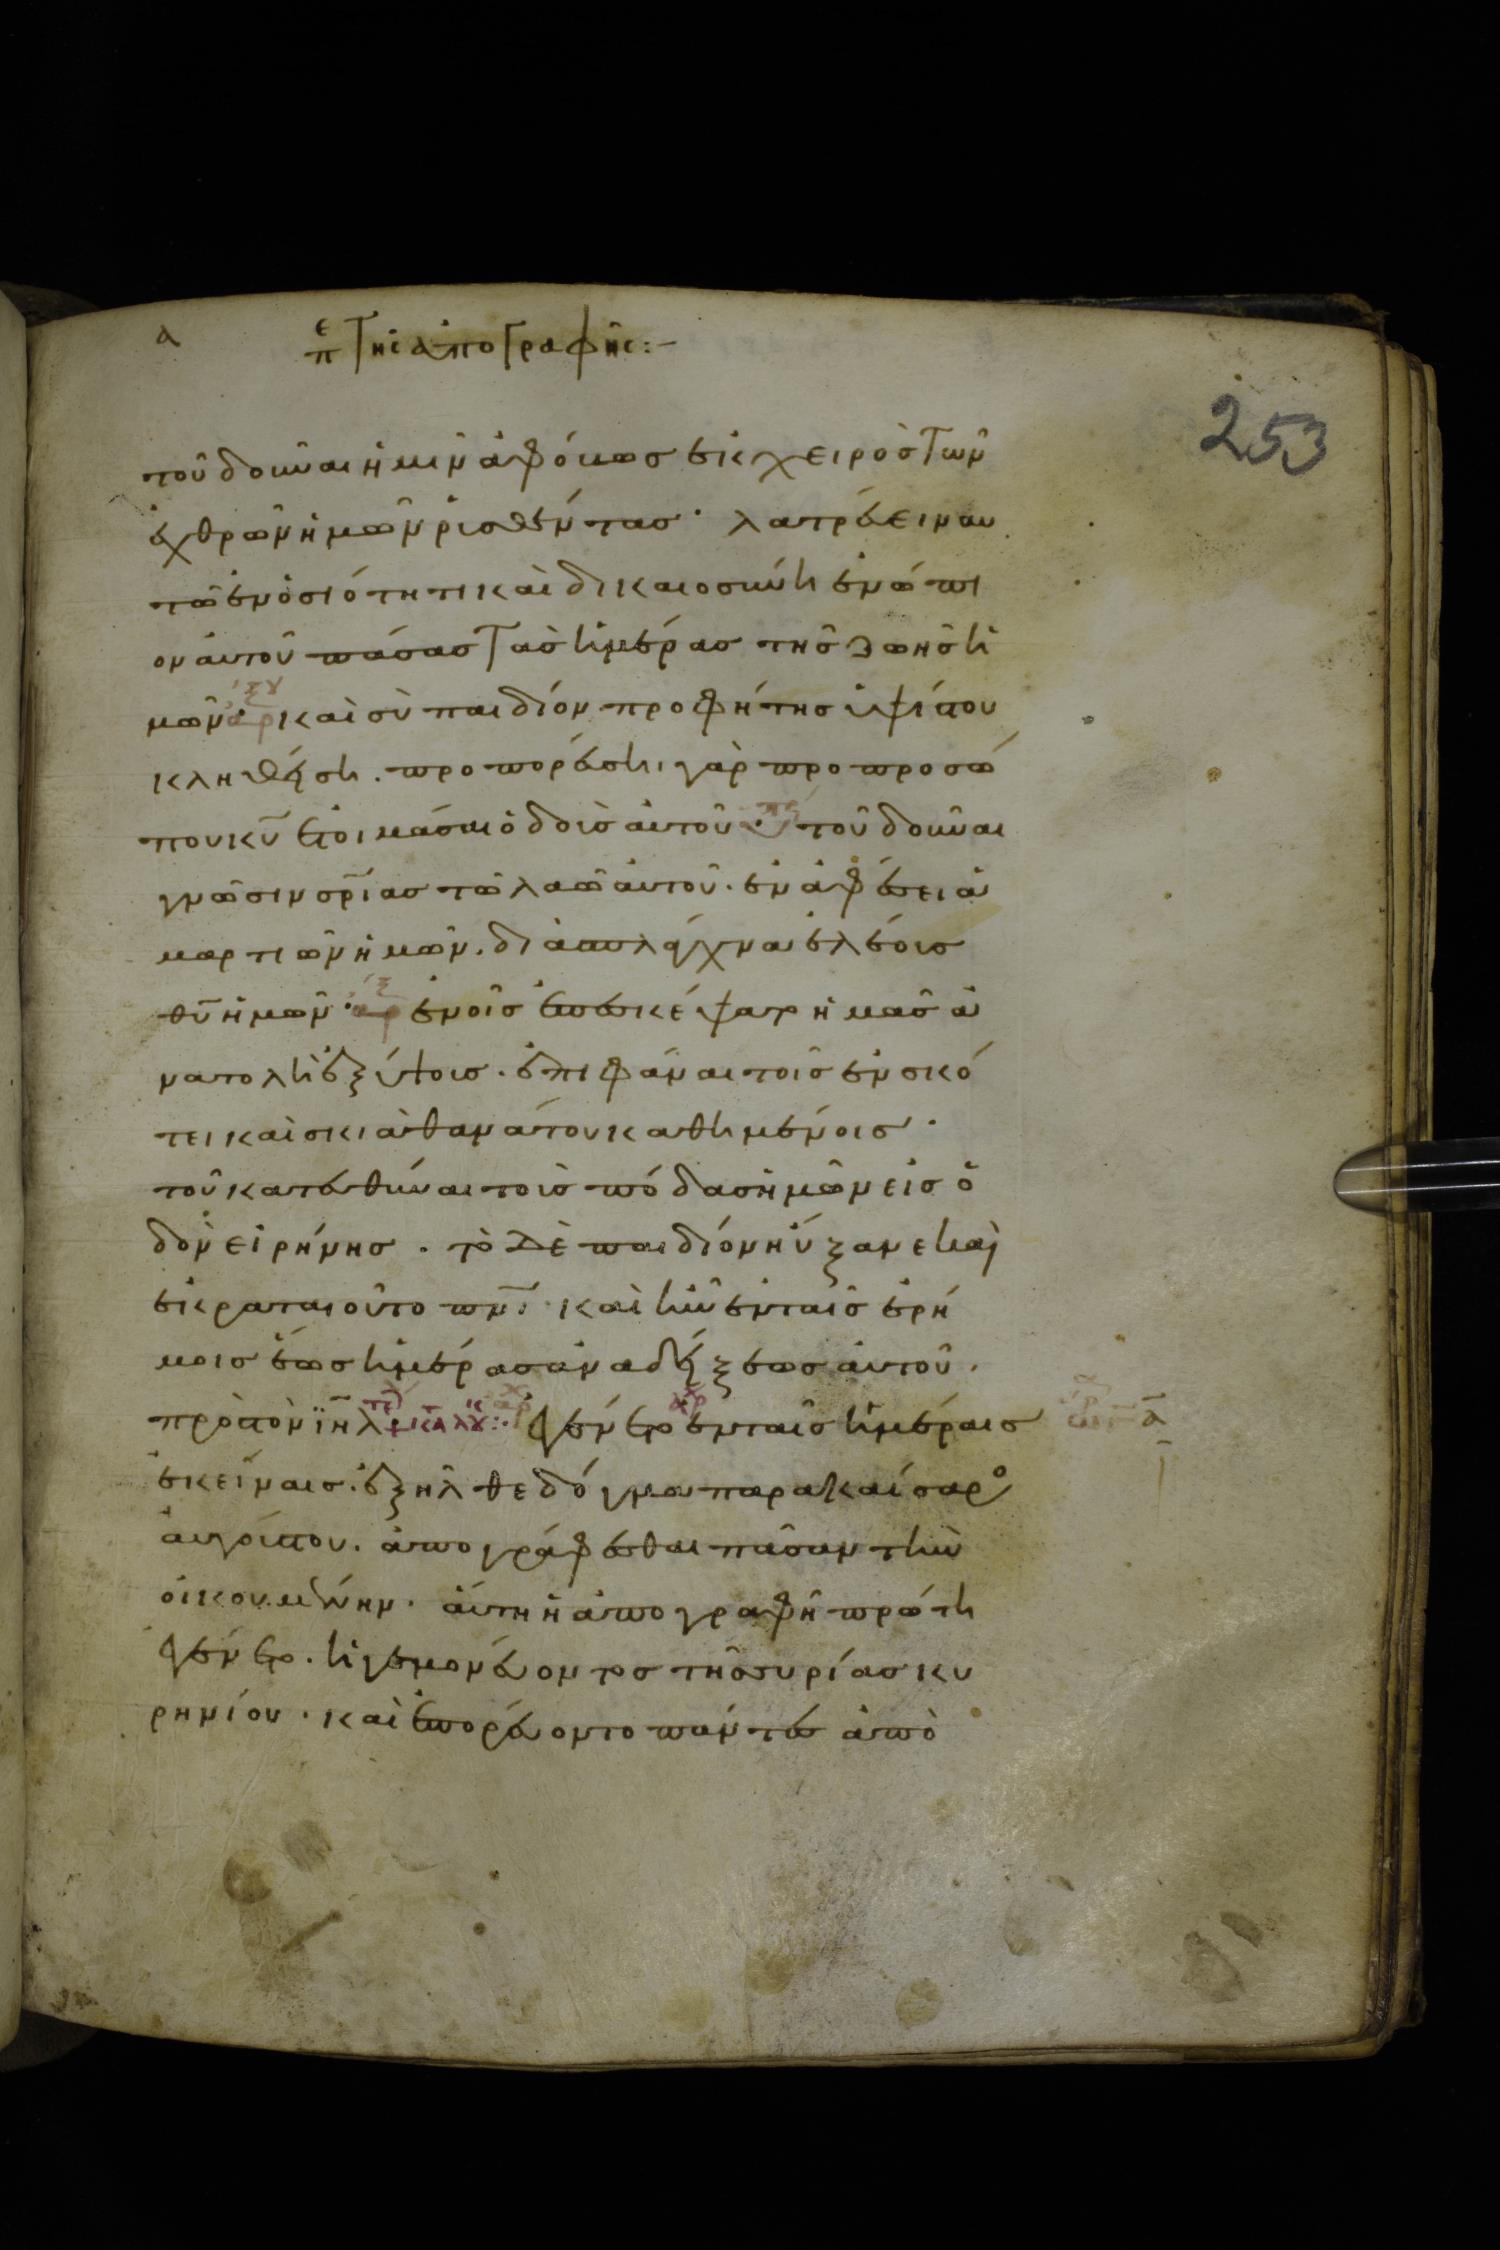 α περὶ τῆς ἀπογραφῆς:–
253
τοῦ δοῦναι ἡμῖν ἀφόβως ἐκ χειρὸς τῶν
ἐχθρῶν ἡμῶν ῥυσθέντας· λατρεύειν αυ
τῶ ἐν ὁσιότητι καὶ δικαιοσύνη ἐνώπι
ον αὐτοῦ πάσας τὰς ἡμέρας τῆς ζωῆς ἡ
μῶν· καὶ σὺ παιδίον προφήτης ὑψίστου
κληθήση. προπορεύση γὰρ πρὸ προσώ
που κ̅υ̅ ἑτοιμάσαι ὁδοὺς αὐτοῦ· τοῦ δοῦναι
γνῶσιν σ̅ρ̅ίας τῶ λαῶ αὐτοῦ. ἐν ἀφέσει ἁ
μαρτιῶν ἡμῶν. διὰ σπλάγχνα ἐλέους
θ̅υ̅ ἡμῶν· ἐν οἷς ἐπεσκέψατο ἡμᾶς ἀ
νατολὴ ἐξ ὕψους. ἐπιφᾶναι τοῖς ἐν σκό
τει καὶ σκιᾶ θανάτου καθημένοις·
τοῦ κατευθῦναι τοὺς πόδας ἡμῶν εἰς ὁ
δὸν εἰρήνης. τὸ δὲ παιδίον ηὔξανε καὶ
ἐκραταιοῦτο π̅ν̅ι· καὶ ἦν ἐν ταῖς ἐρή
μοις ἕως ἡμέρας ἀναδείξεως αὐτοῦ.
πρὸς τὸν ι̅η̅λ· ἐγένετο ἐν ταῖς ἡμέραις
ἐκείναις. ἐξῆλθε δόγμα παρὰ καίσαρο
αὐγούστου. ἀπογράφεσθαι πᾶσαν τὴν
οἰκουμένην. αὕτη ἡ ἀπογραφὴ πρώτη
ἐγένετο. ἡγεμονεύοντος τῆς συρίας κυ
ρηνίου. καὶ ἐπορεύοντο πάντες ἀπὸ